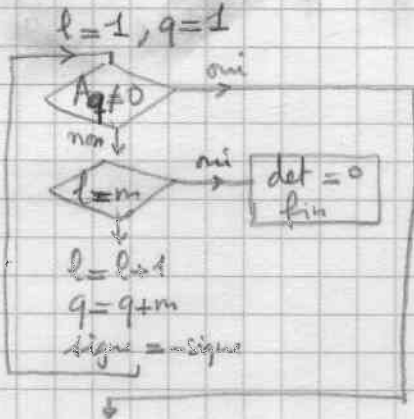 l=1, q=1
Aq≠0
oui
non
l=m
oui
det = 0
fin
l=l+1
q=q+m
signe=-signe